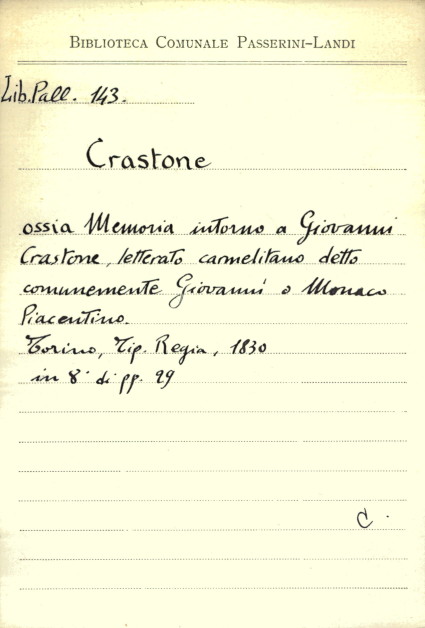 BIBLIOTECA COMUNALE PASSERINI-LANDI
Lib. Pall. 143.
Crastone
ossia Memoria intorno a Giovanni
Crastone, letterato carmelitano detto
comunemente Giovanni o Monaco
Piacentino.
Torino, Tip. Regia, 1830
in 8° di pp. 29
C.